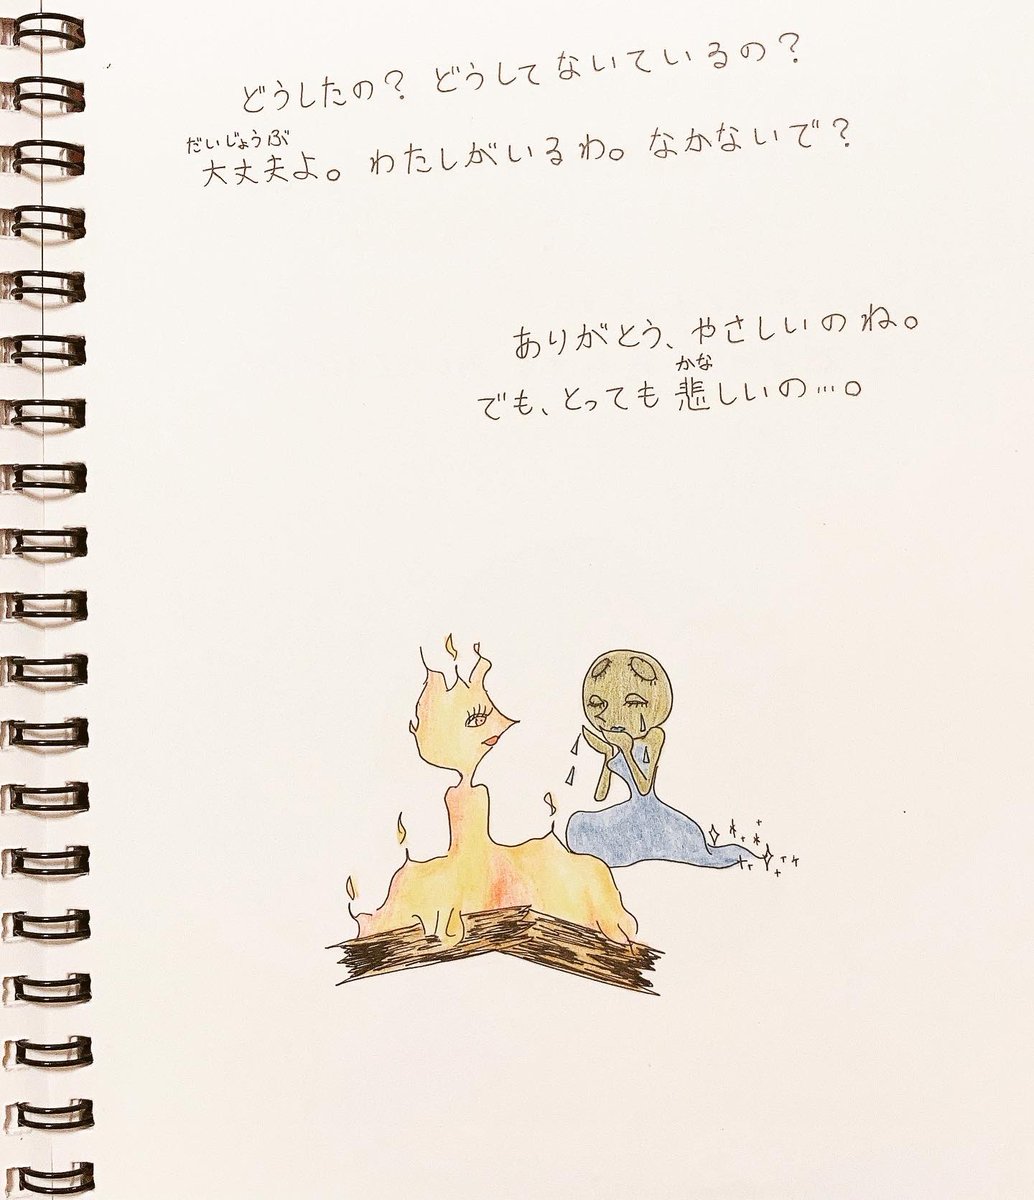 どうしたの？ どうしてないているの？
だいじょうぶ
大丈夫よ。 わたしがいるわ。 なかないで？
ありがとう、やさしいのね。
かな
でも、とっても悲しいの…。